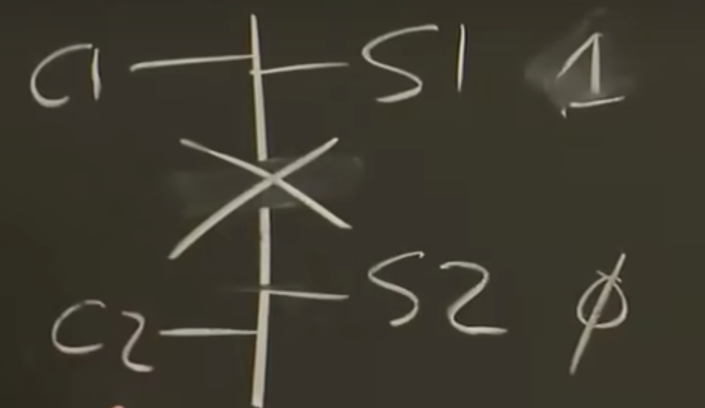 C1 S1 1
C2 S2 0